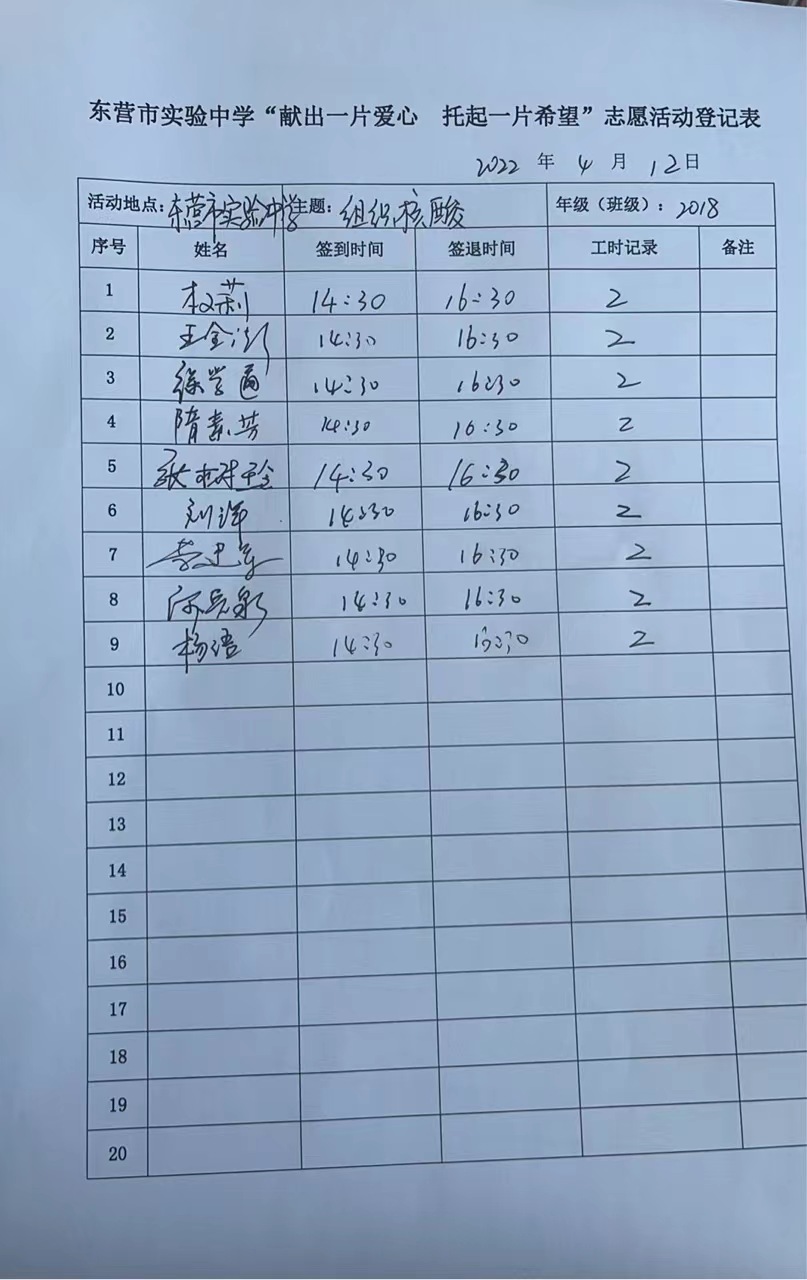 东营市实验中学“献出一片爱心 托起一片希望”志愿活动登记表
2022 年 4 月 12 日
活动地点：东营市实验中学 主题：组织核酸 年级（班级）：2018
序号 姓名 签到时间 签退时间 工时记录 备注
1 权莉 14:30 16:30 2
2 王金 14:30 16:30 2
3 徐学 14:30 16:30 2
4 隋素芳 14:30 16:30 2
5 张 14:30 16:30 2
6 刘洋 14:30 16:30 2
7 李建军 14:30 16:30 2
8 14:30 16:30 2
9 杨语 14:30 2
10
11
12
13
14
15
16
17
18
19
20